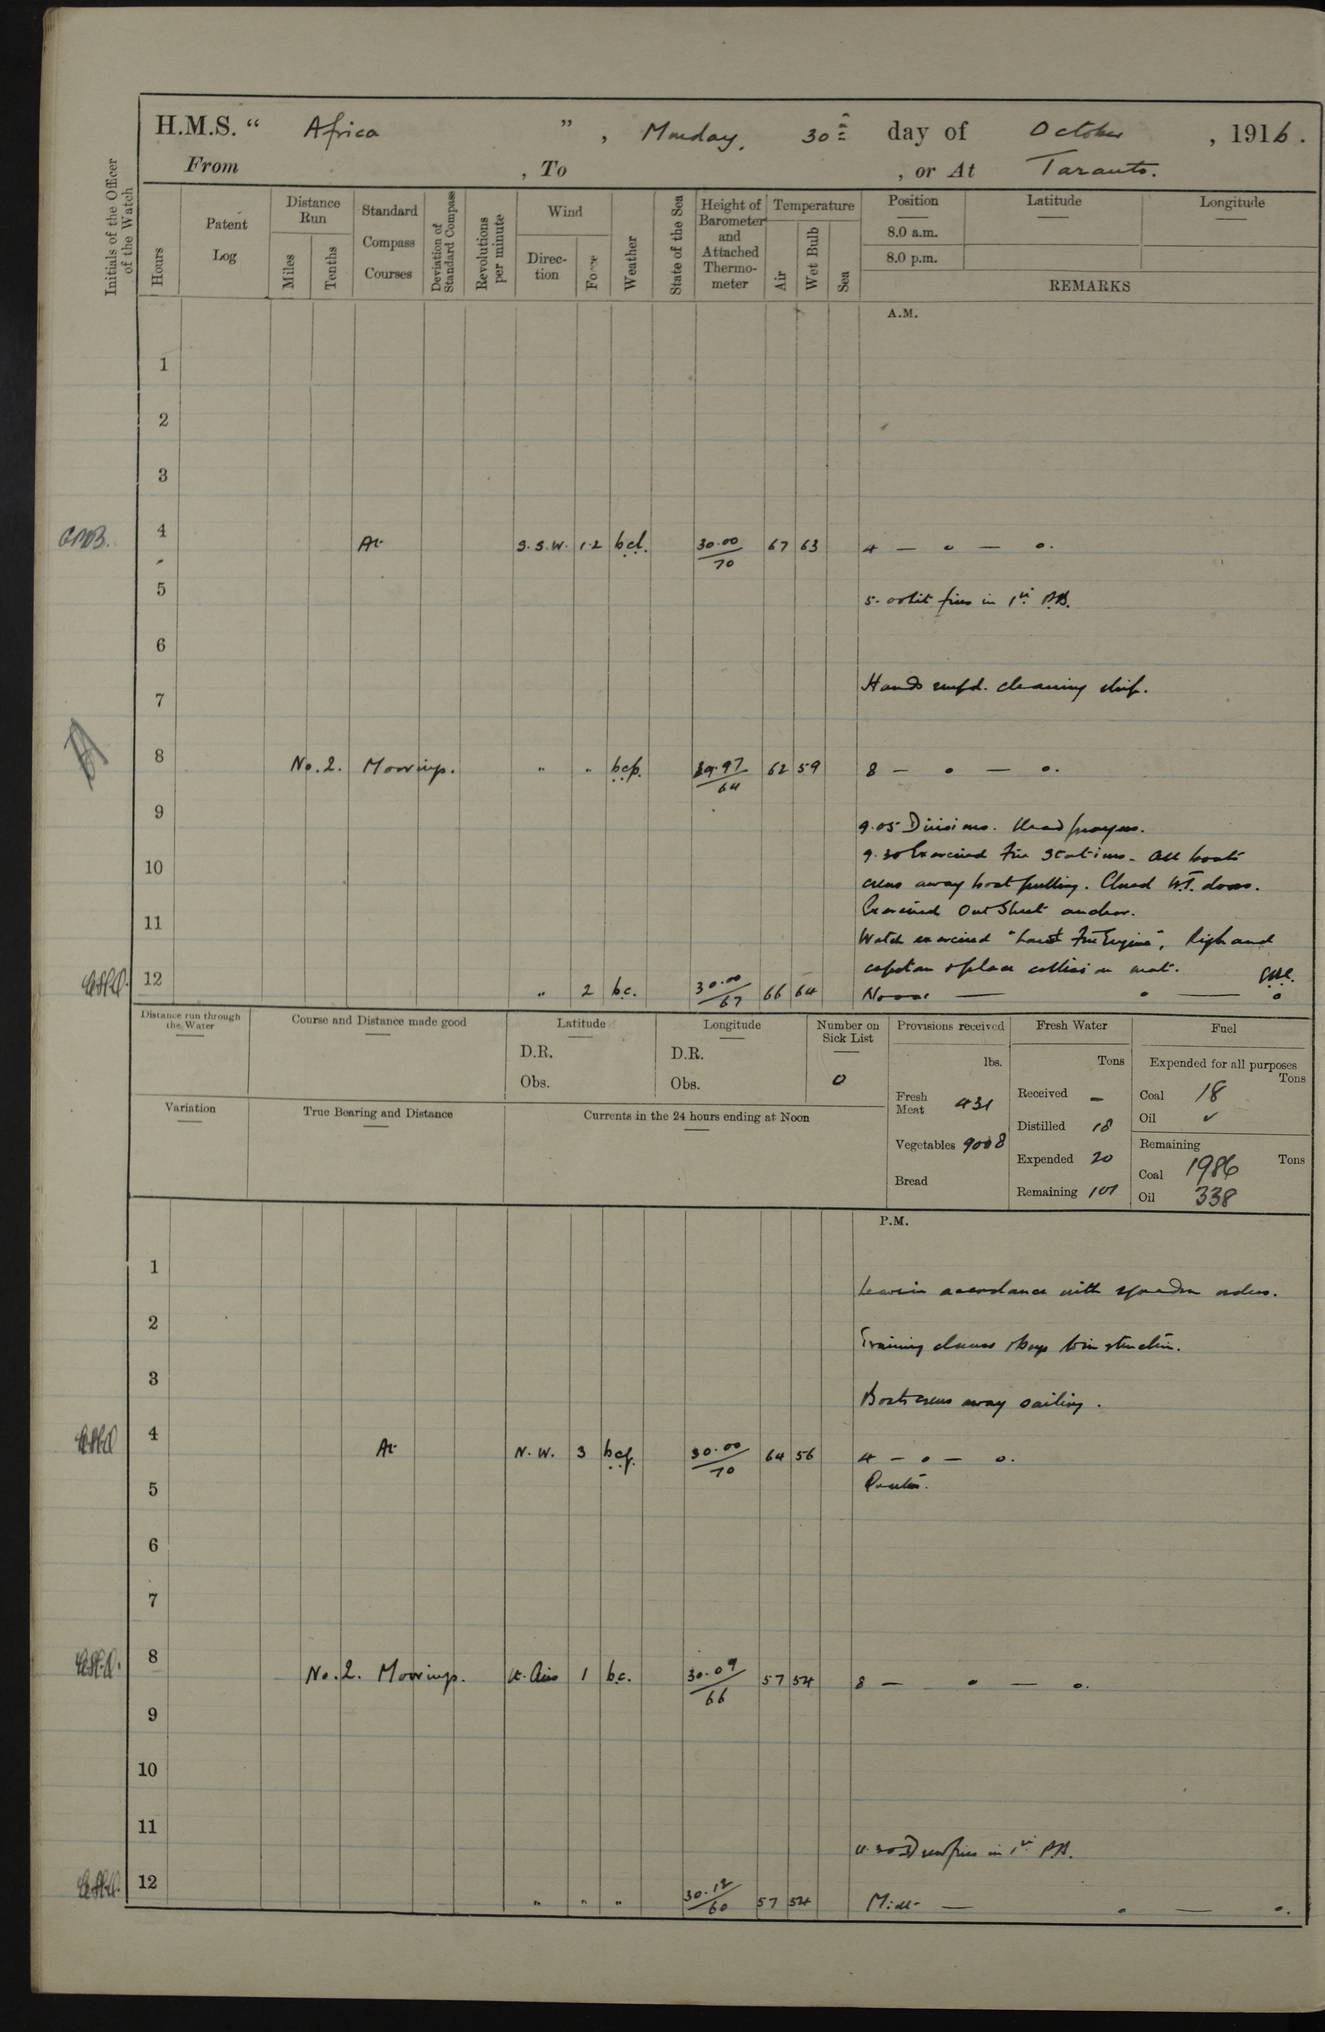 H.M.S. " Africa " , Monday, 30th day of October , 1916.
From , To , or At Taranto.
Initials of the Officer of the Watch
Hours
Patent Log
Distance Run
Miles
Tenths
Standard Compass Courses
Deviation of Standard Compass
Revolutions per minute
Wind
Direc-tion
Force
Weather
State of the Sea
Height of Barometer and Attached Thermo-meter
Temperature
Air
Wet Bulb
Sea
Position Latitude Longitude
8.0 a.m.
8.0 p.m.
REMARKS
A.M.
1
2
3
4 At S.S.W. 1.2 30.00/70 67 63 4 — o — o.
5 5. lit fires in 1st P.B.
6
7 Hands empd. cleaning ship.
8 No. 2. Moorings. " " b.c.p. 29.97/64 62 59 8 — o — o.
9 9.05 Divisions. Read prayers.
9.30 Exercised Fire Stations. All boats
10 crews away boat pulling. Closed W.T. doors.
Exercised Out Sheet anchor.
11 Watch exercised "Land Fire Engine", Rig hand
capstan & place collision mat.
12 " 2 b.c. 30.00/67 66 64 Noon — o — o
Distance run through the Water
Course and Distance made good
Latitude
D.R.
Obs.
Longitude
D.R.
Obs.
Number on Sick List
0
Provisions received
lbs.
Fresh Meat 431
Vegetables 9008
Bread
Fresh Water
Tons
Received —
Distilled 18
Expended 20
Remaining 101
Fuel
Expended for all purposes
Tons
Coal 18
Oil ✓
Remaining
Tons
Coal 1986
Oil 338
Variation
True Bearing and Distance
Currents in the 24 hours ending at Noon
P.M.
1 Leave in accordance with squadron orders.
2 Training classes & boys to instruction.
3 Boats crews away sailing.
4 At N.W. 3 30.00/70 64 56 4 — o — o.
5 Quarters.
6
7
8 No. 2. Moorings. Lt. Airs 1 b.c. 30.09/66 57 54 8 — o — o.
9
10
11 Drew fires in 1st P.B.
12 " " " 30.12/60 57 54 Midt — o — o.